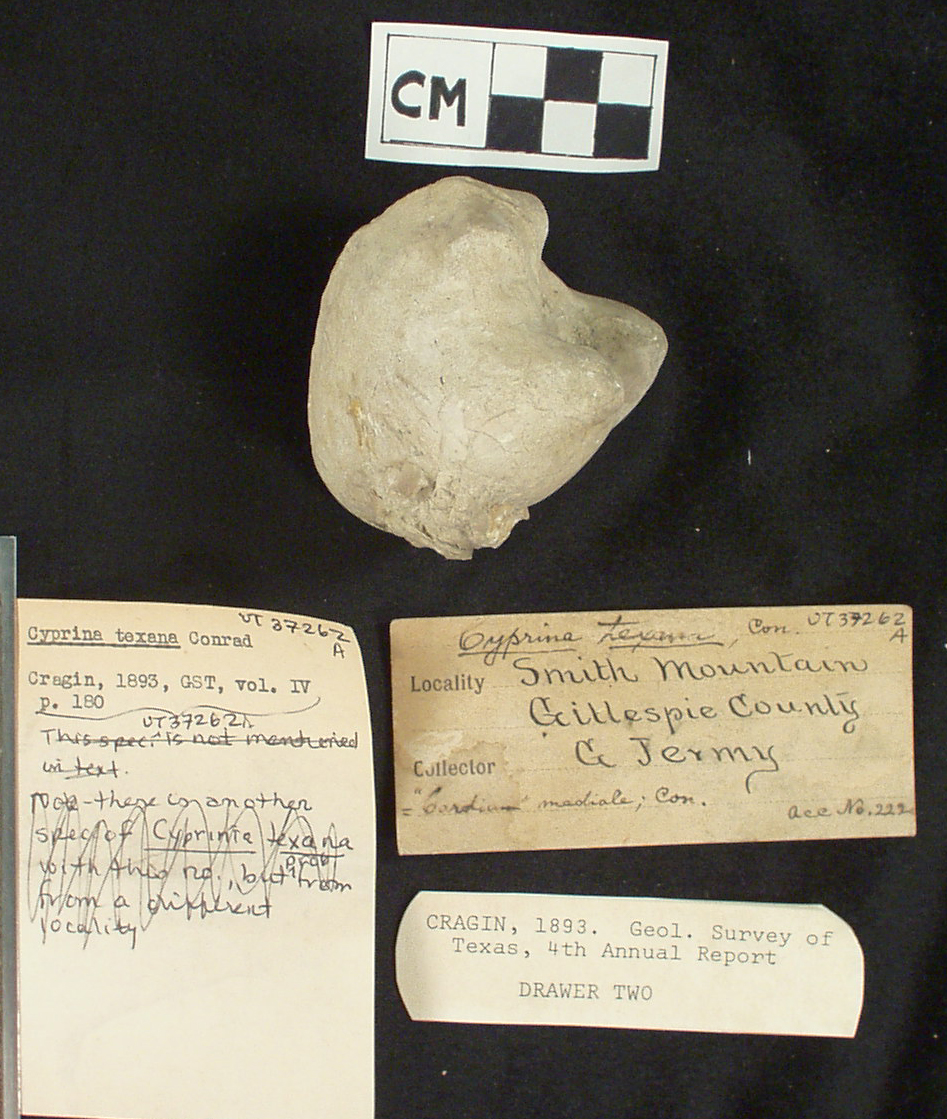 CM
UT 37262
A
Cyprina texana Conrad
Cragin, 1893, GST, vol. IV
p. 180
UT37262A
This spec. is not mentioned
in text.
Note-there is another
spec of Cyprinia texana
prob
with this no., but from
from a different
locality
Cyprina texana, Con. UT37262
A
Locality Smith Mountain
Gillespie County
Collector G Jermy
= "Cardium" mediale; Con. acc No. 222
CRAGIN, 1893. Geol. Survey of
Texas, 4th Annual Report
DRAWER TWO